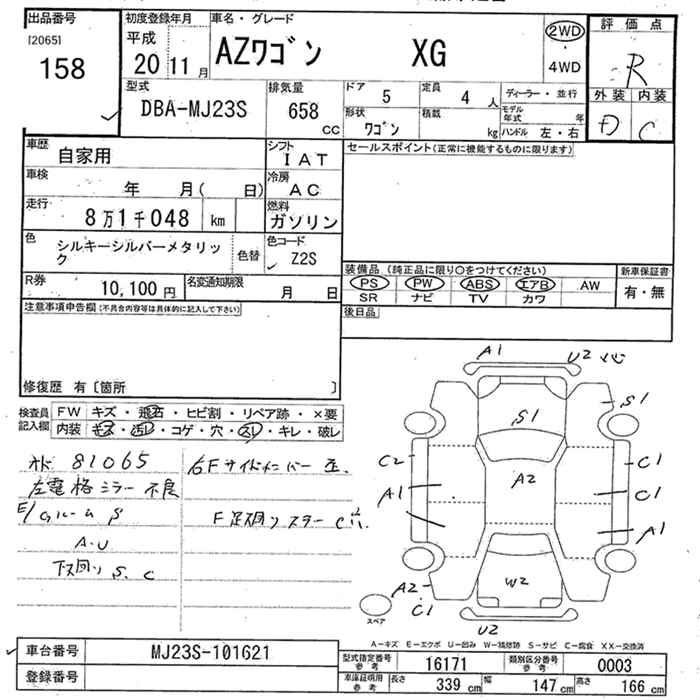 出品番号 初度登録年月 車名・グレード 評価点
[2065] 平成 AZワゴン XG 2WD R
158 20 11月 4WD
外装 内装
型式 排気量 ドア 5 定員 4 人 ディーラー・並行 D C
DBA-MJ23S 658 cc 形状 ワゴン 積載 kg モデル年式 年
ハンドル 左・右
車歴 自家用 シフト IAT セールスポイント(正常に機能するものに限ります)
車検 年 月( 日) 冷房 AC
走行 8万1千048 km 燃料 ガソリン
色 シルキーシルバーメタリック 色替 色コード Z2S
R券 10,100円 名変通知期限 月 日
装備品 (純正品に限り○をつけてください) 新車保証書
PS PW ABS エアB AW 有・無
SR ナビ TV カワ
注意事項申告欄(不具合内容等は具体的に記入して下さい) 後日品
修復歴 有〔箇所 〕
検査員記入欄 FW キズ・飛石・ヒビ割・リペア跡・×要
内装 キズ・汚レ・コゲ・穴・スレ・キレ・破レ
81065 右Fサイドメンバー
左電格ミラー不良
F足回り
A-U
下回り S.C
A1 U2
S1
S1
C2 C1
A2
A1 C1
A1
W2
A2
C1
スペア
U2
A-キズ E-エクボ U-凹み W-補修跡 S-サビ C-腐食 XX-交換済
車台番号 MJ23S-101621
登録番号
型式指定番号 参考 16171 類別区分番号 参考 0003
車庫証明用 参考 長さ 339 cm 幅 147 cm 高さ 166 cm